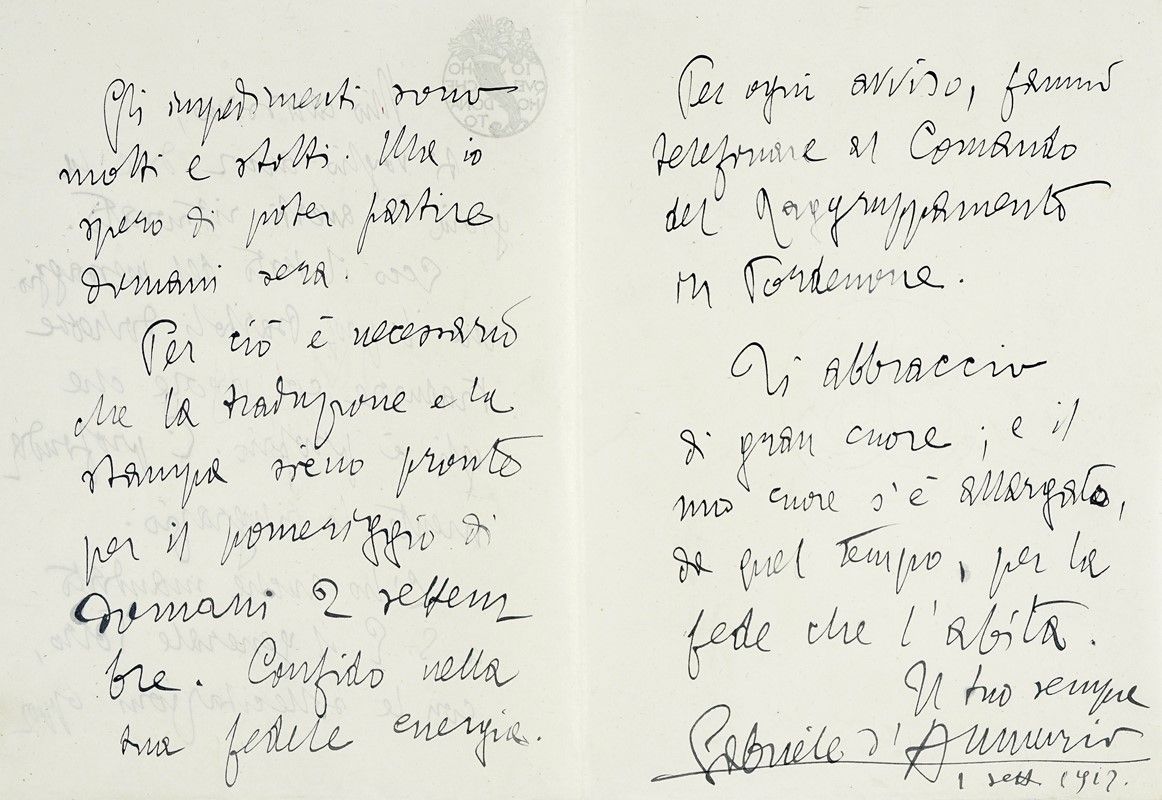 Gli impedimenti sono
molti e stolti. Ma io
spero di poter partire
domani sera.
Per ciò è necessario
che la traduzione e la
stampa sieno pronte
per il pomeriggio di
domani 2 settem
bre. Confido nella
tua fedele energia.
Per ogni avviso, fammi
telefonare al Comando
del Raggruppamento
in Pordenone.
Ti abbraccio
di gran cuore; e il
mio cuore s'è allargato,
da quel tempo, per la
fede che l'abita.
Il tuo sempre
Gabriele d'Annunzio
1 sett. 1917.